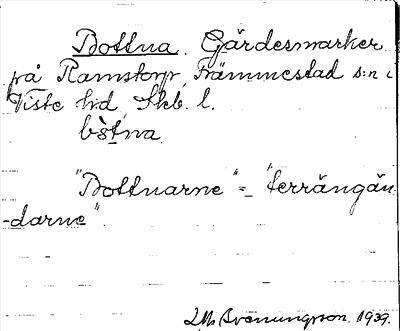 Bottna. Gärdesmarker
på Ramstorp, Främmestad s:n i
Viste hd, Skb. l.
bòtna.
"Bottnarne" = "terrängän-
-darne".
Svenungsson. 1939.